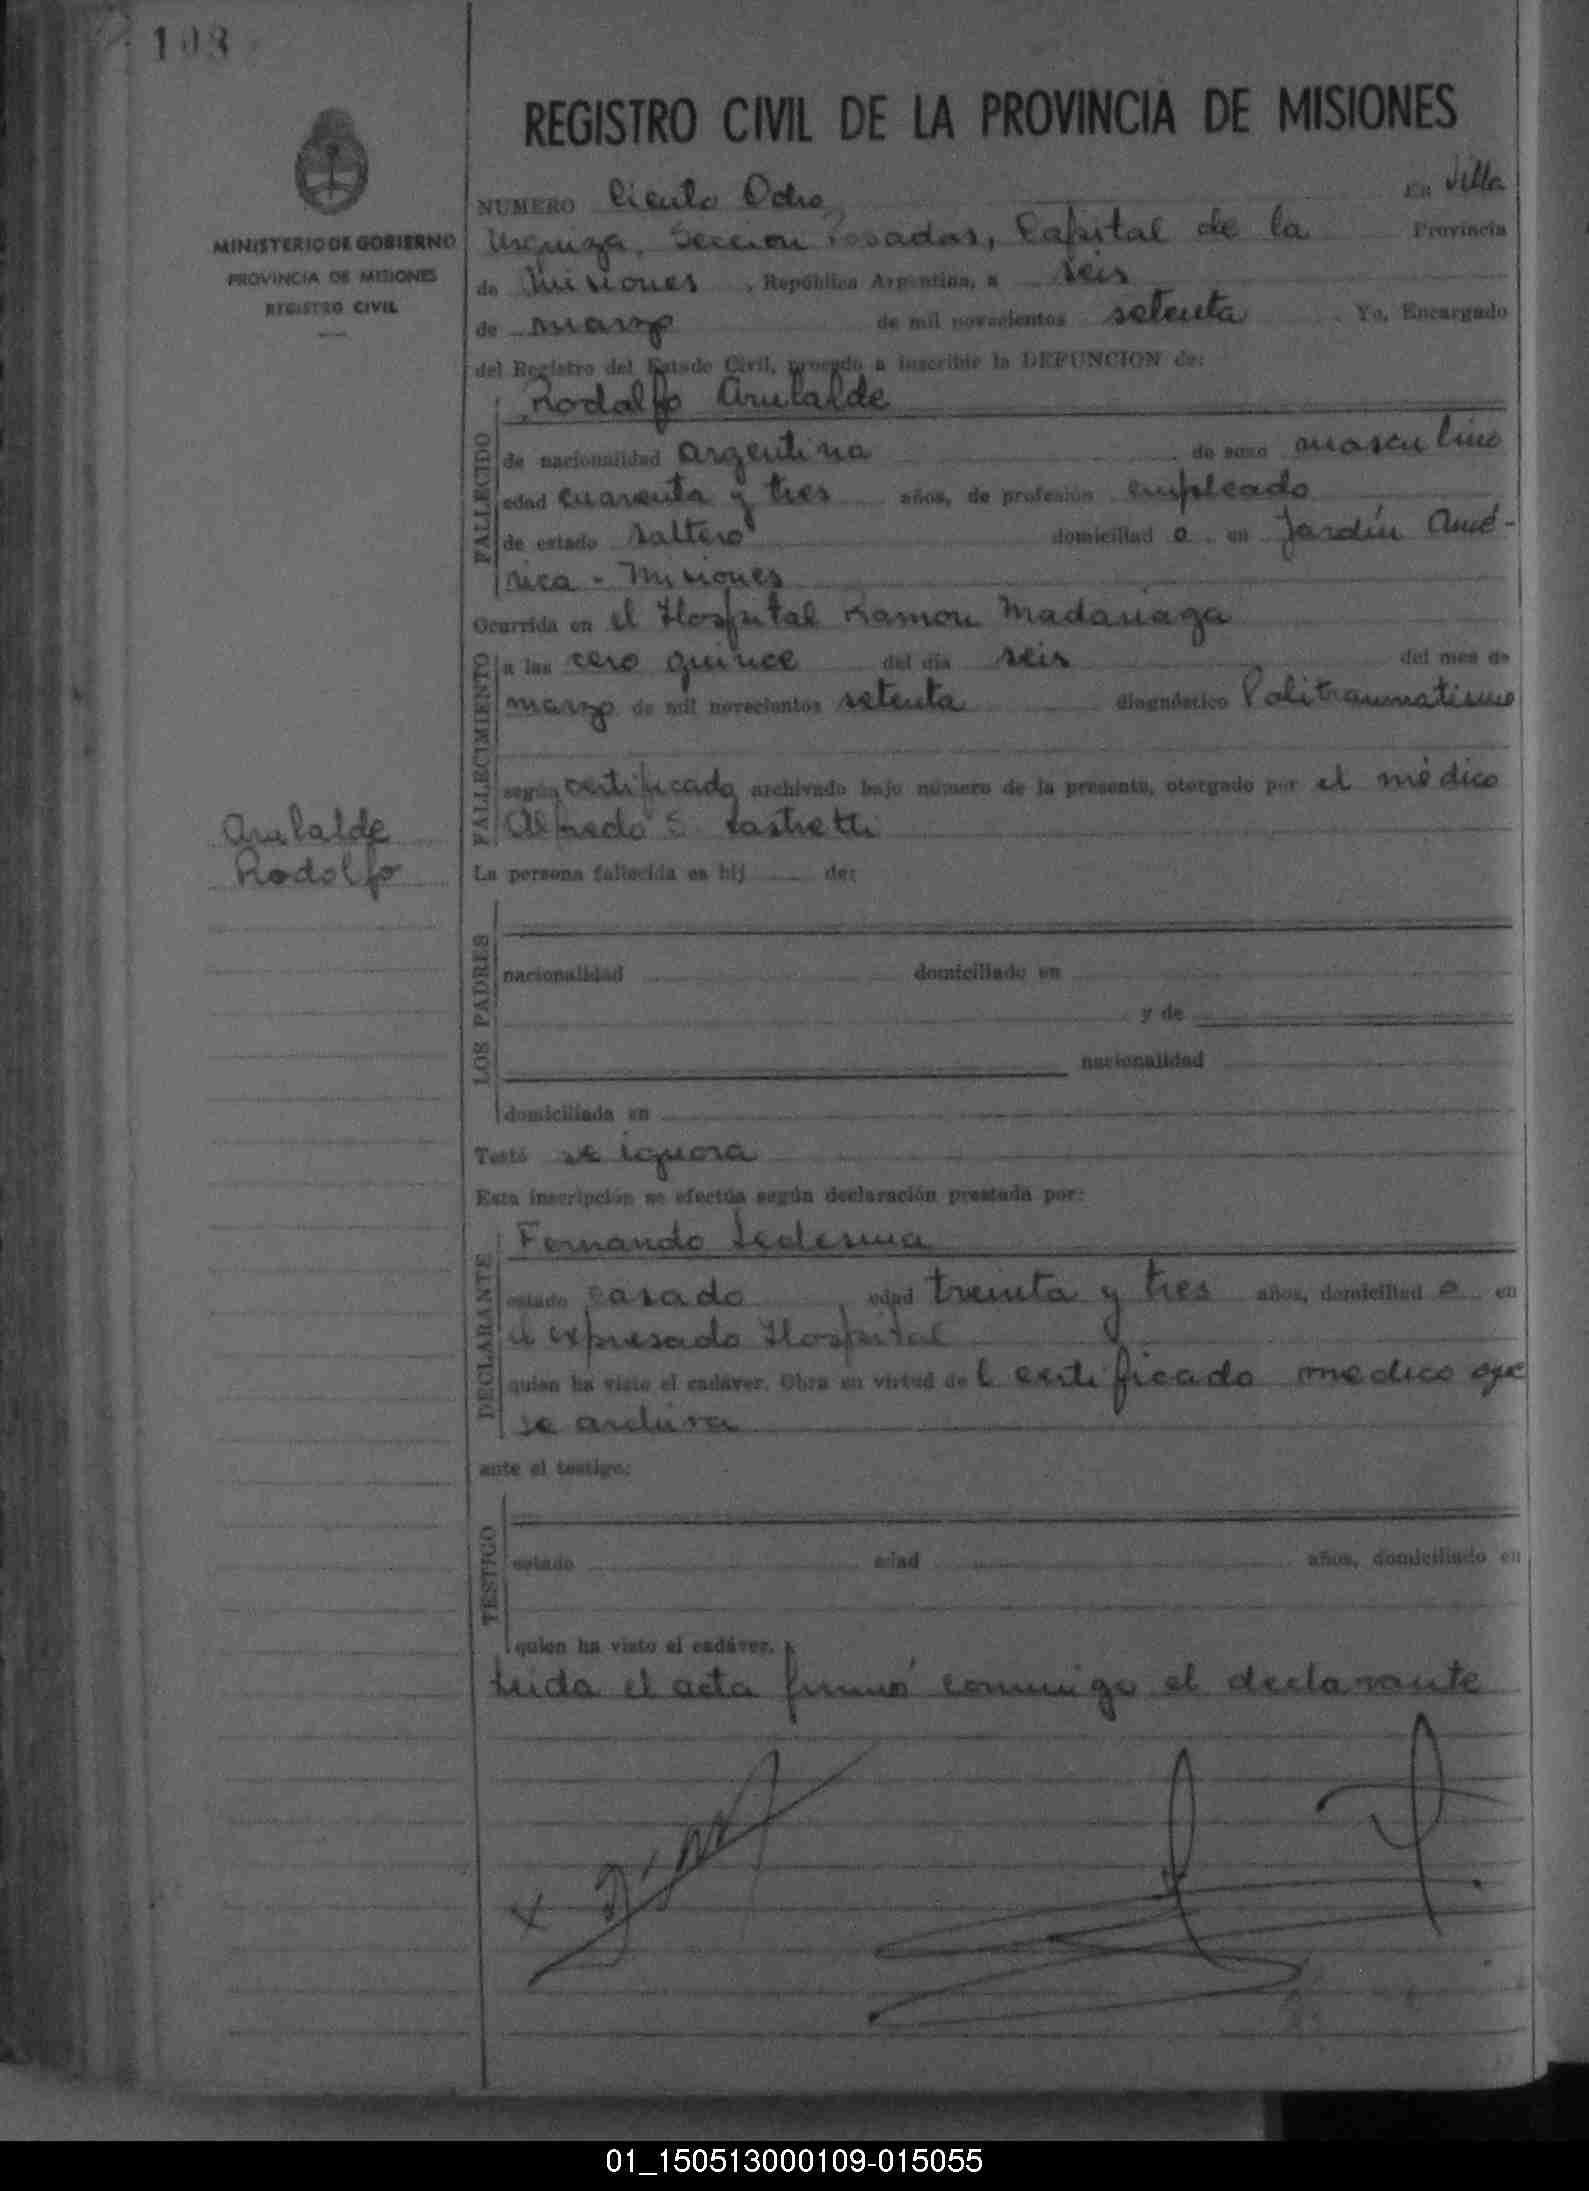 108
REGISTRO CIVIL DE LA PROVINCIA DE MISIONES
MINISTERIO DE GOBIERNO
PROVINCIA DE MISIONES
REGISTRO CIVIL
NUMERO Ciento Ocho En Villa
Urquiza, Seccion Posadas, Capital de la Provincia
de Misiones, República Argentina, a seis
de marzo de mil novecientos setenta Yo, Encargado
del Registro del Estado Civil, procedo a inscribir la DEFUNCION de:
FALLECIDO
Rodolfo
de nacionalidad argentina de sexo masculino
edad cuarenta y tres años, de profesión empleado
de estado soltero domiciliad o en Jardín Amé-
rica - Misiones
Ocurrida en el Hospital Ramon Madariaga
FALLECIMIENTO
a las cero quince del día seis del mes de
marzo de mil novecientos setenta diagnóstico Politraumatismo
según certificado archivado bajo número de la presente, otorgado por el médico
Alfredo S.
Rodolfo
La persona fallecida es hij de:
LOS PADRES
nacionalidad domiciliado en
y de
nacionalidad
domiciliada en
Testó se ignora
Esta inscripción se efectúa según declaración prestada por:
DECLARANTE
Fernando Ledesma
estado casado, edad treinta y tres años, domiciliad o en
el expresado Hospital
quien ha visto el cadáver. Obra en virtud de l certificado medico que
se archiva
ante el testigo:
TESTIGO
estado edad años, domiciliado en
quien ha visto el cadáver.
Leida el acta firmó conmigo el declarante
01_150513000109-015055